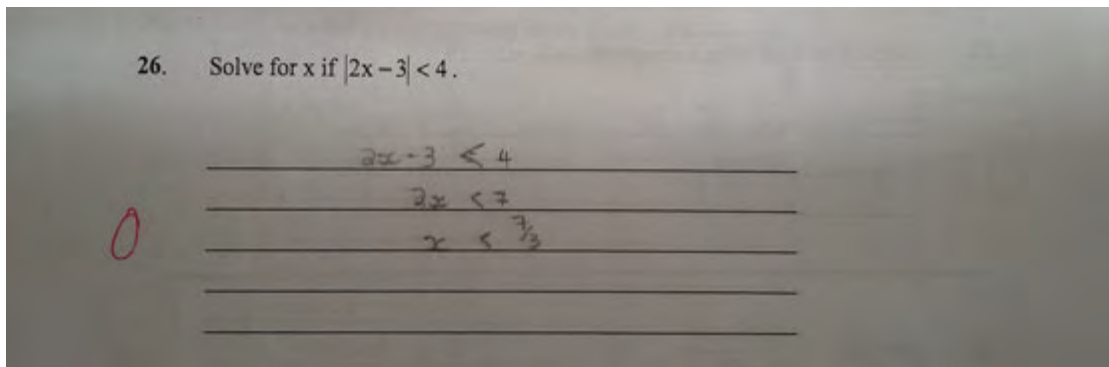 26. Solve for x if |2x – 3| < 4.
2x - 3 < 4
2x < 7
x < 7/3
0